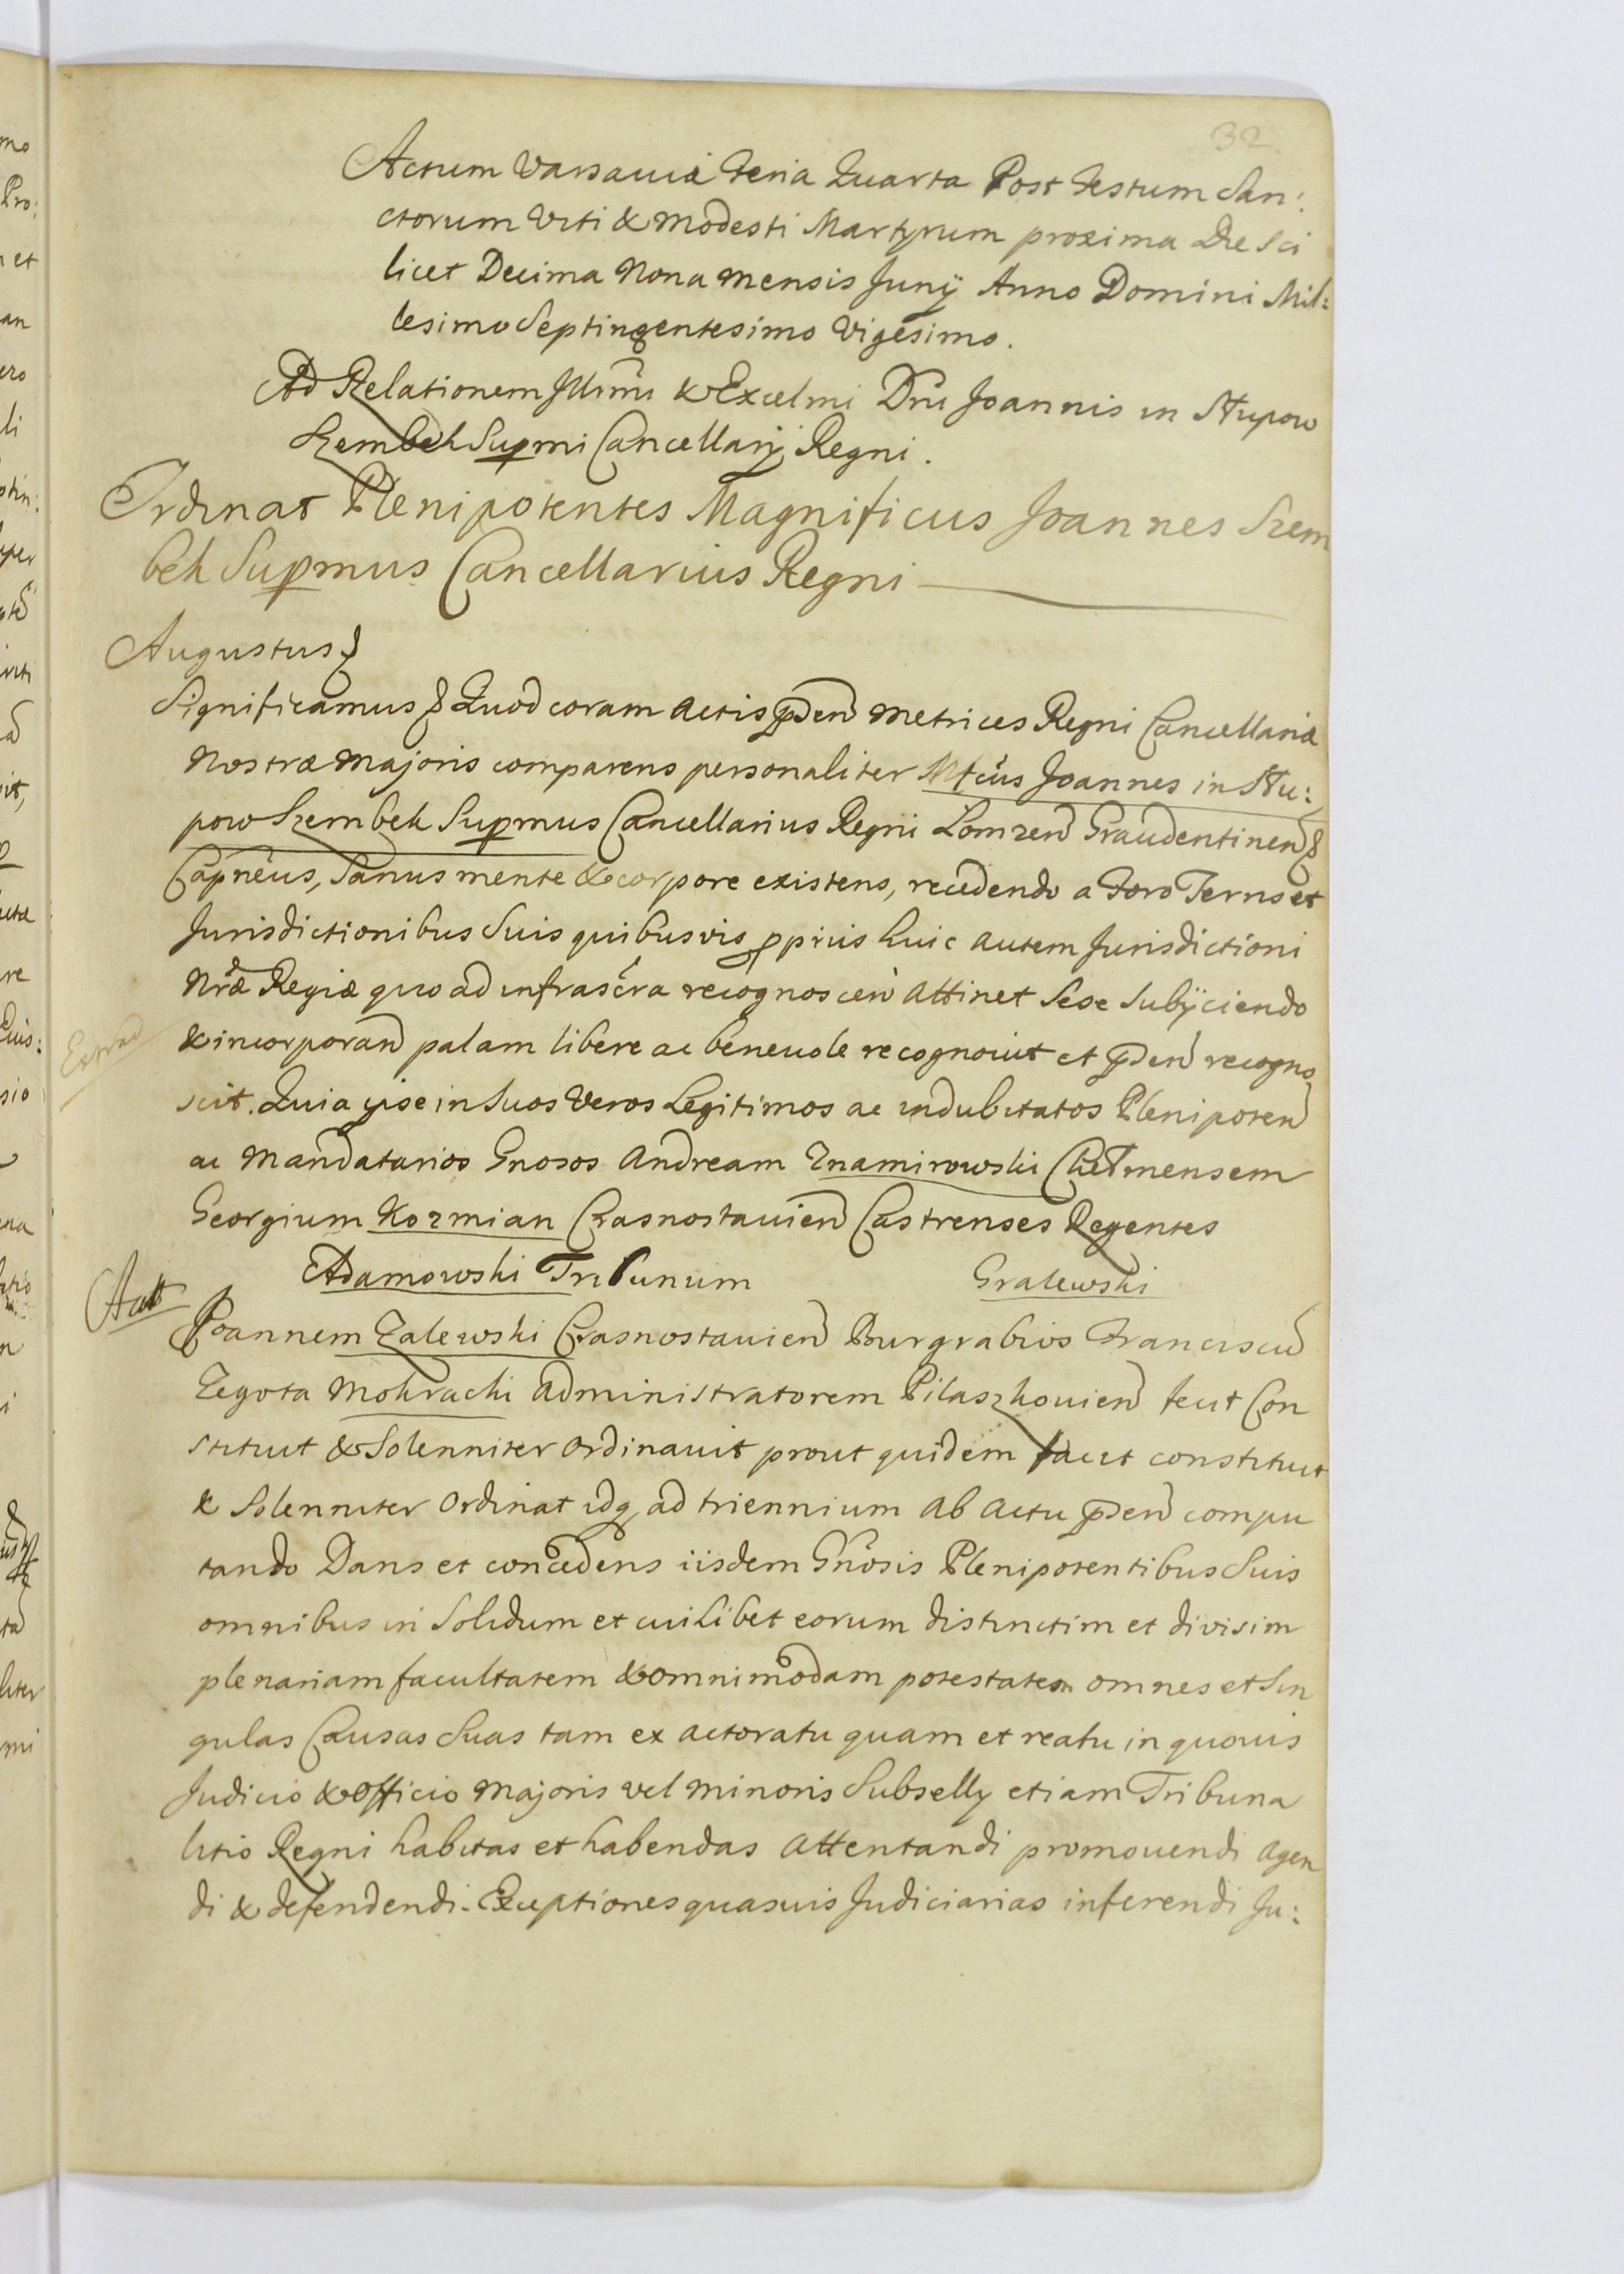 32
Actum Varsaviæ Feria Quarta Post Festum San:
ctorum Viti & Modesti Martyrum proxima Die Sci
licet Decima Nona Mensis Junÿ Anno Domini Mil:
lesimo Septingentesimo Vigesimo.
Ad Relationem Illmi & Excelmi Dni Joannis in Słupow
Szembek Supmi Cancellarÿ Regni.
Ordinat Plenipotentes Magnificus Joannes Szem
bek Supmus Cancellarius Regni
Augustus
Significamus Quod coram Actis pden Metrices Regni Cancellariæ
Nostræ Majoris comparens personaliter Mfcus Joannes in Słu:
pow Szembek Supmus Cancellarius Regni Lomzen Graudentinen
Capneus, Sanus mente & corpore existens, recedendo a Foro Terris et
Jurisdictionibus Suis quibusvis ppriis huic autem Jurisdictioni
Nræ Regiæ quo ad infrascra recognoscen Attinet Sese Subÿciendo
& incorporand palam libere ac benevole recognovit et pden recogno
scit. Quia ipse in Suos Veros Legitimos ac indubitatos Plenipoten
ac Mandatarios Gnosos Andream Znamirowski Chełmensem
Georgium Kozmian Crasnostavien Castrenses Regentes
Adamowski Tribunum Gralewski
Act
Joannem Zalewski Crasnostavien Burgrabios Franciscu
Zegota Mokrachi Administratorem Pilaszkovien fecit Con
stituit & Solenniter Ordinavit prout quidem facit constituit
& Solenniter Ordinat idq ad triennium Ab Actu pden compu
tando Dans et concedens iisdem Gnosis Plenipotentibus Suis
omnibus in Solidum et cuilibet eorum distinctim et divisim
plenariam facultatem & omnimodam potestatem omnes et Sin
gulas Causas Suas tam ex actoratu quam et reatu in quovis
Judicio & Officio Majoris vel Minoris Subsellÿ etiam Tribuna
litio Regni habitas et habendas Attentandi promovendi Agen
di & defendendi. Exceptiones quasvis Judiciarias inferendi Ju: